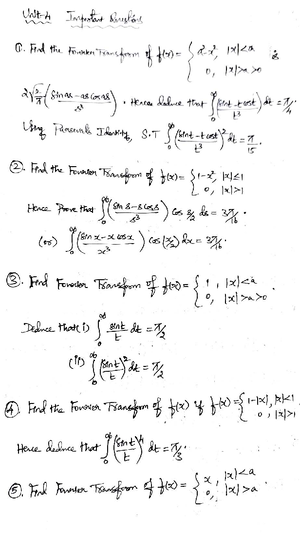 Unit-4 Important Questions
①. Find the Fourier Transform of f(x) = { a²-x², |x|<a
0, |x|>a>0 is
2√(2/π) ((sin as - as cos as)/s³). Hence deduce that ∫₀^∞ ((sint - tcost)/t³) dt = π/4.
Using Parsevals Identity, S.T ∫₀^∞ ((sint - tcost)/t³)² dt = π/15.
② . Find the Fourier Transform of f(x) = { 1-x², |x|≤1
0, |x|>1
Hence Prove that ∫₀^∞ ((sins - scoss)/s³) cos s/2 ds = 3π/16.
(or) ∫₀^∞ ((sinx - xcosx)/x³) cos(x/2) dx = 3π/16.
③ . Find Fourier Transform of f(x) = { 1, |x|<a
0, |x|>a>0.
Deduce that i) ∫₀^∞ sint/t dt = π/2
(ii) ∫₀^∞ (sint/t)² dt = π/2
④ . Find the Fourier Transform of f(x) if f(x) = { 1-|x|, |x|<1
0, |x|>1
Hence deduce that ∫₀^∞ (sint/t)⁴ dt = π/3.
⑤ . Find Fourier Transform of f(x) = { x, |x|<a
0, |x|>a.